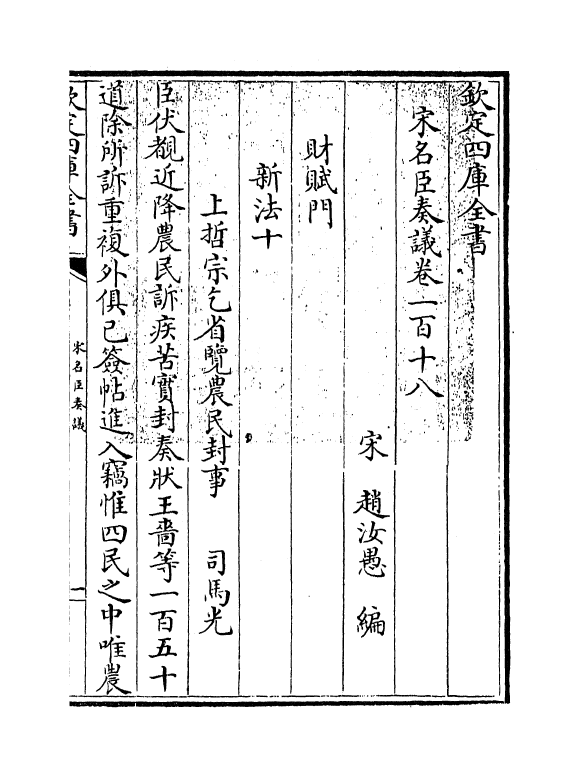 欽定四庫全書
宋名臣奏議卷一百十八
宋 趙汝愚 編
財賦門
新法十
上哲宗乞省覽農民封事 司馬光
臣伏覩近降農民訴疾苦實封奏狀王嗇等一百五十
道除所訴重複外俱已簽帖進入竊惟四民之中唯農
欽定四庫全書
宋名臣奏議
一